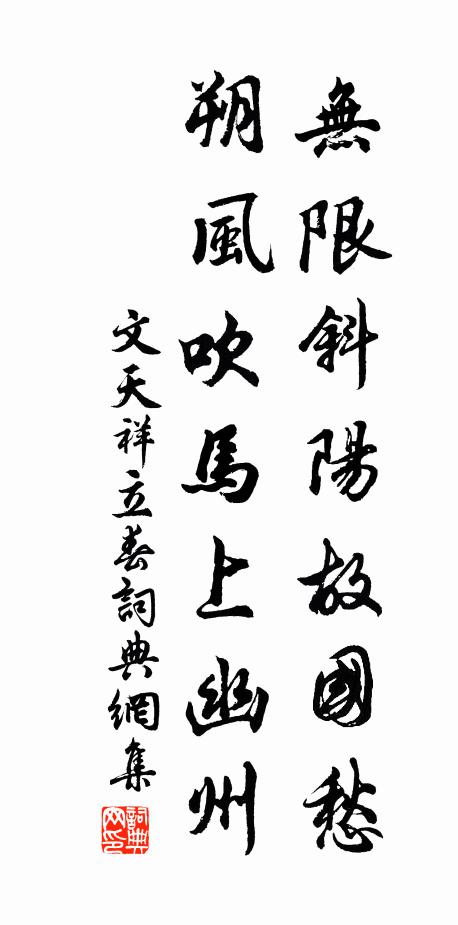 無限斜陽故國愁
朔風吹馬上幽州
文天祥立春詞典網集
詞典
网印